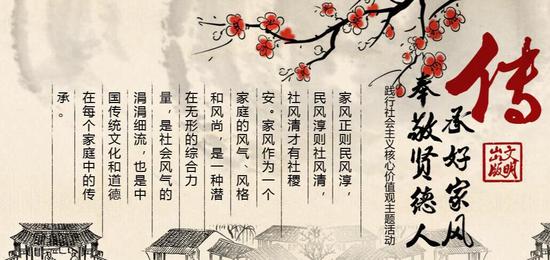 传
承好家风
奉敬贤德人
文明
出版
践行社会主义核心价值观主题活动
家风正则民风淳，
民风淳则社风清，
社风清才有社稷
安。家风作为一个
家庭的风气、风格
和风尚，是一种潜
在无形的综合力
量，是社会风气的
涓涓细流，也是中
国传统文化和道德
在每个家庭中的传
承。